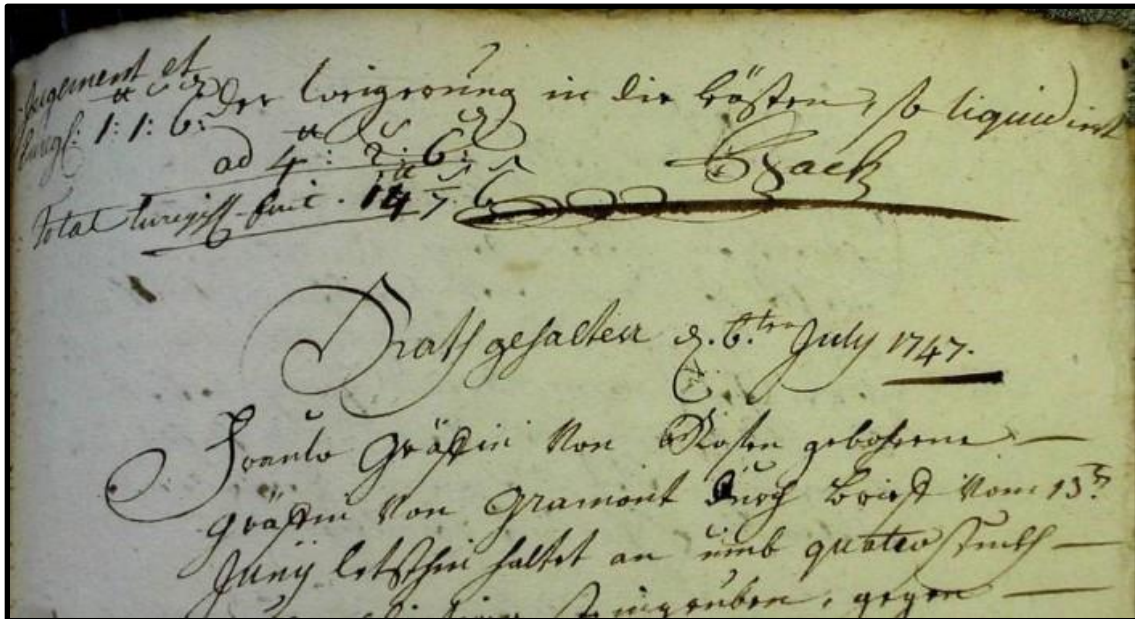 Jugement et
der Weigerung in die Cösten, so liquidirt
1: 1: 6:
ad 4: 2: 6:
Total fuit. 14 7. 6
Rath gehalten d. 6.ten July 1747.
Frauw Gräffin Von Rosen gebohrene —
Gräffin Von Gramont durch Brieff Vom 13.
Juny letsthin haltet an umb quater —
steingruben, gegen —